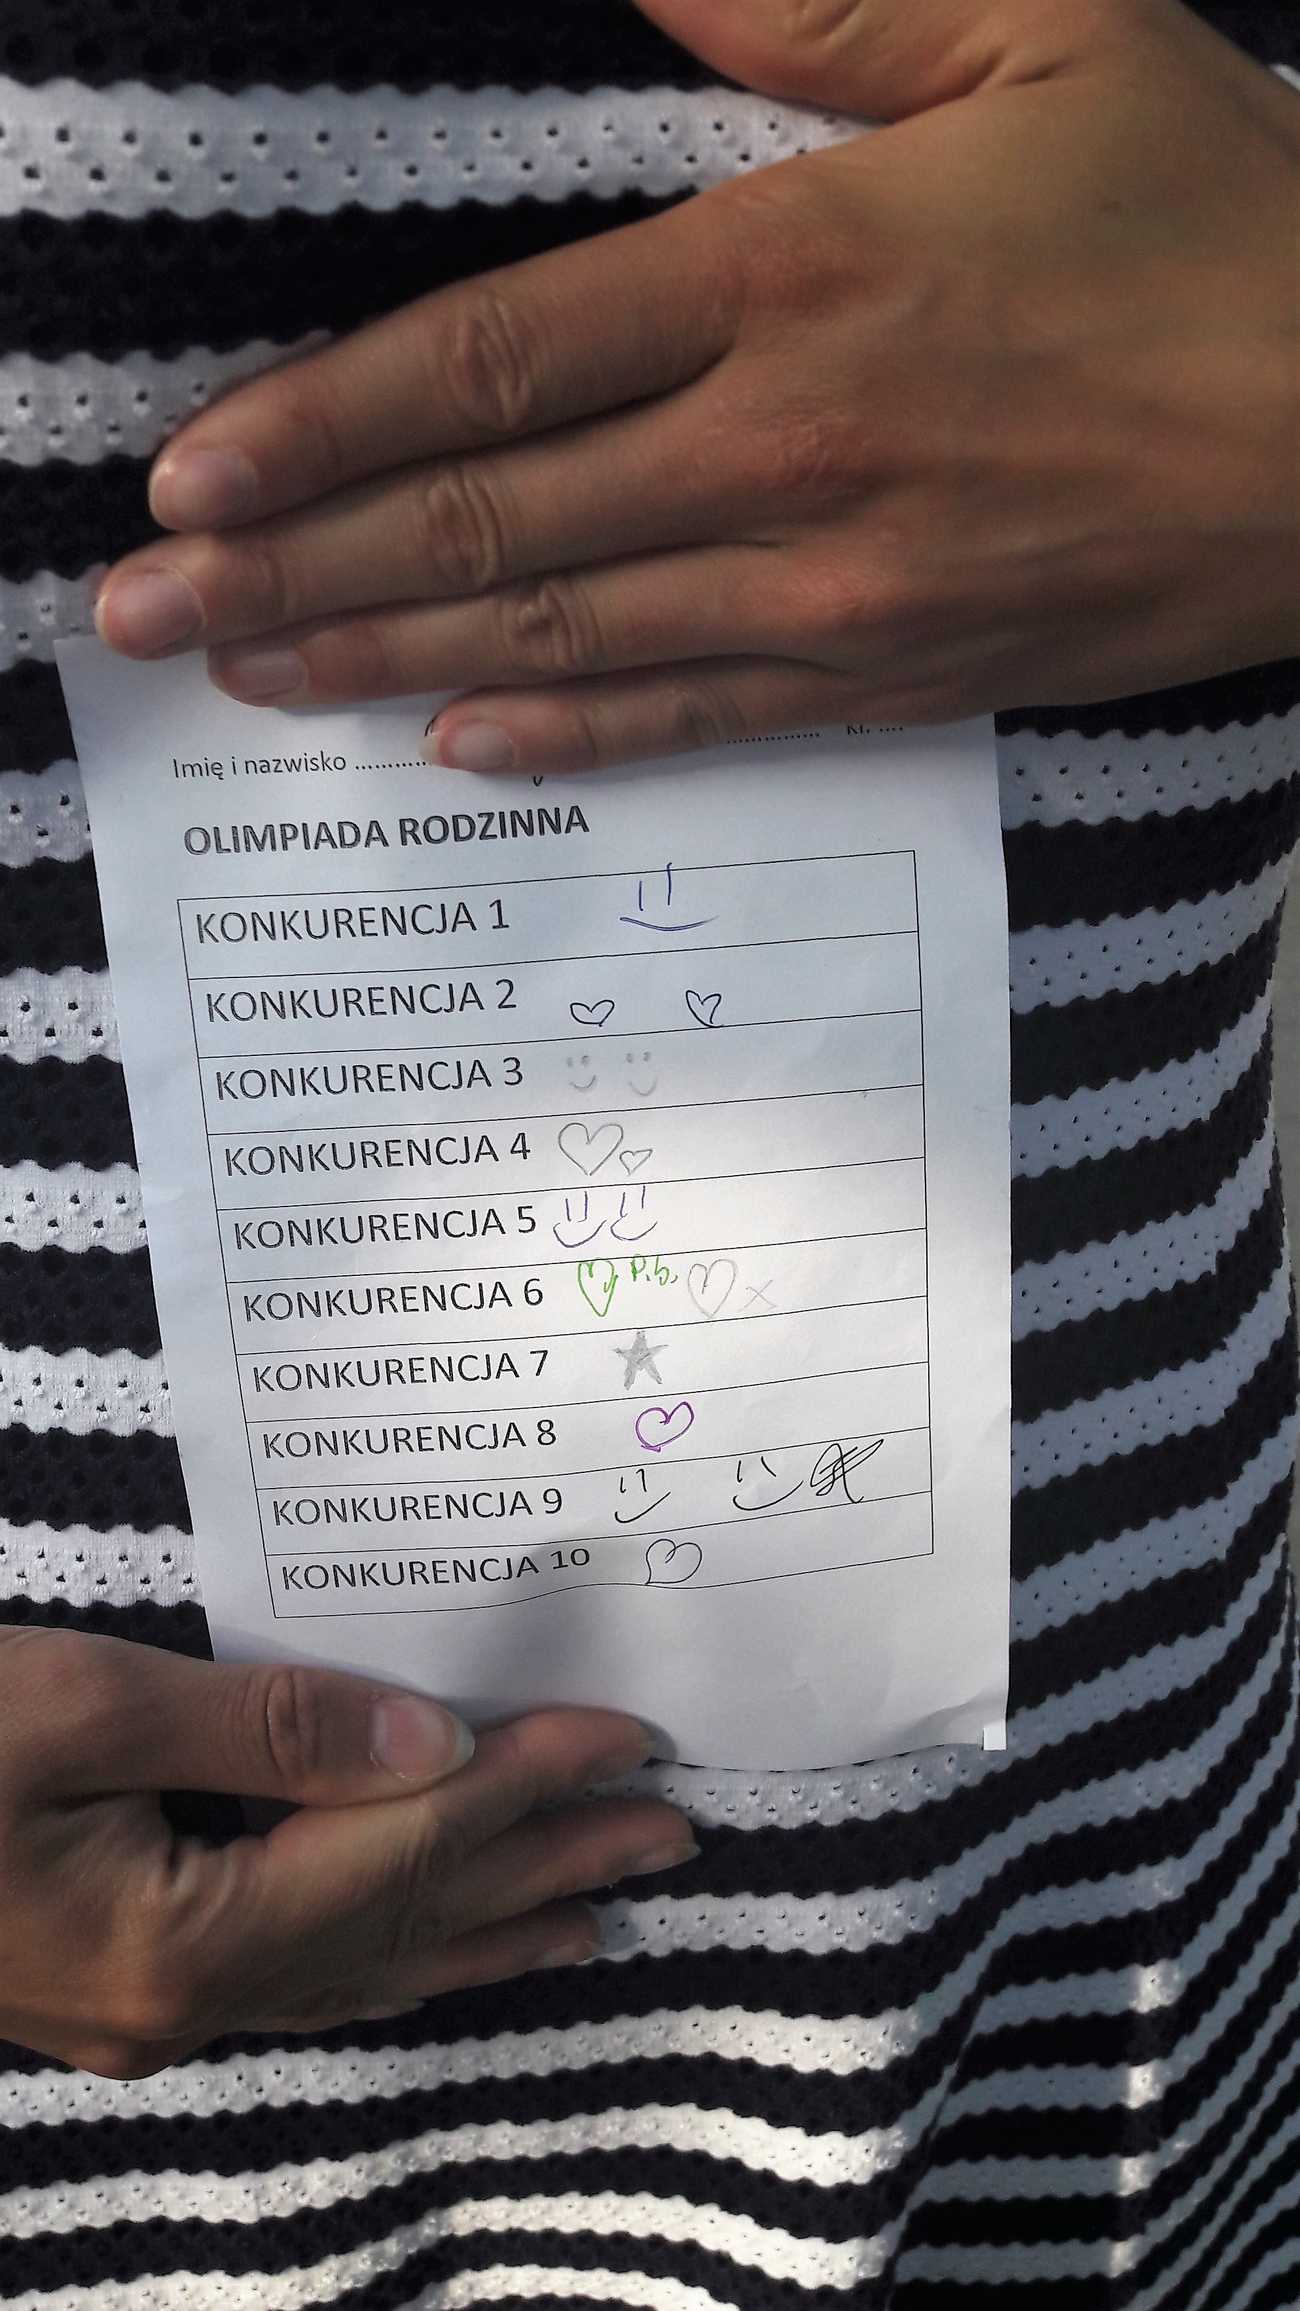 Imię i nazwisko .......... .............. kl. ....
OLIMPIADA RODZINNA
KONKURENCJA 1
KONKURENCJA 2
KONKURENCJA 3
KONKURENCJA 4
KONKURENCJA 5
KONKURENCJA 6 P.b.
KONKURENCJA 7
KONKURENCJA 8
KONKURENCJA 9
KONKURENCJA 10